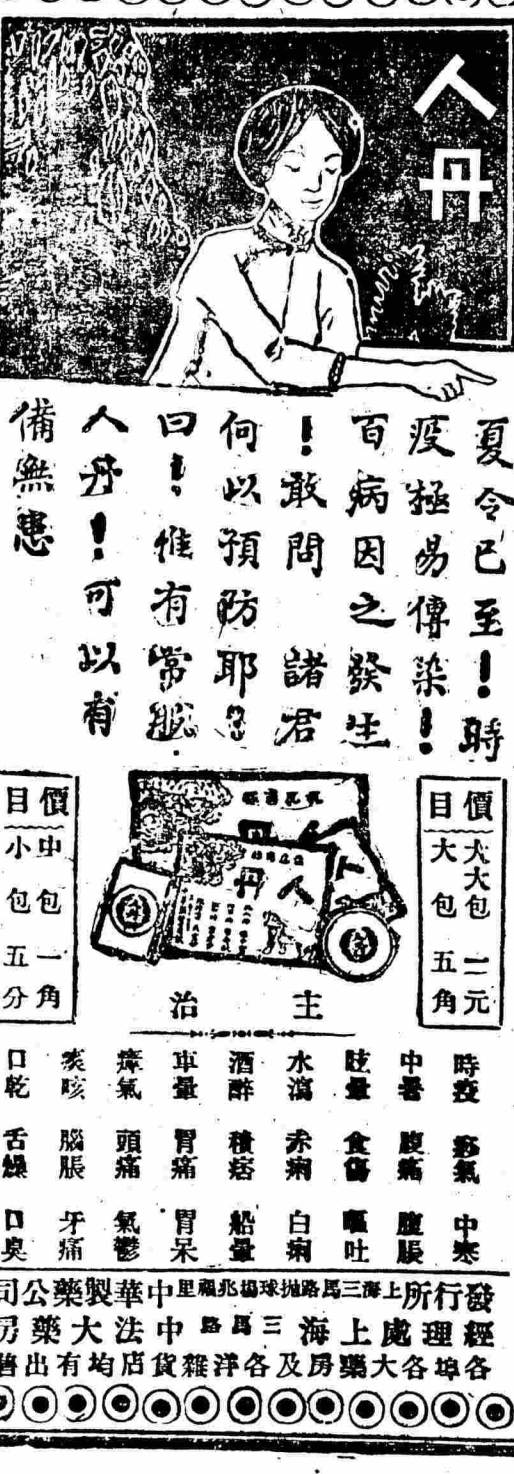 人丹
夏令已至！時
疫極易傳染！
百病因之發生
！敢問　諸君
何以預防耶？
曰！惟有常服
人丹！可以有
備無患
價目
大大包 一元
大包 五角
價目
中包 一角
小包 五分
人丹
主治
時疫 痧氣 中寒
中暑 腹痛 腹脹
眩暈 食傷 嘔吐
水瀉 赤痢 白痢
酒醉 積痞 船暈
車暈 胃痛 胃呆
瘴氣 頭痛 氣鬱
痰咳 腦脹 牙痛
口乾 舌燥 口臭
發行所上海三馬路拋球場兆福里中華製藥公司
經理處上海三馬路中法大藥房
各埠各大藥房及各洋雜貨店均有出售